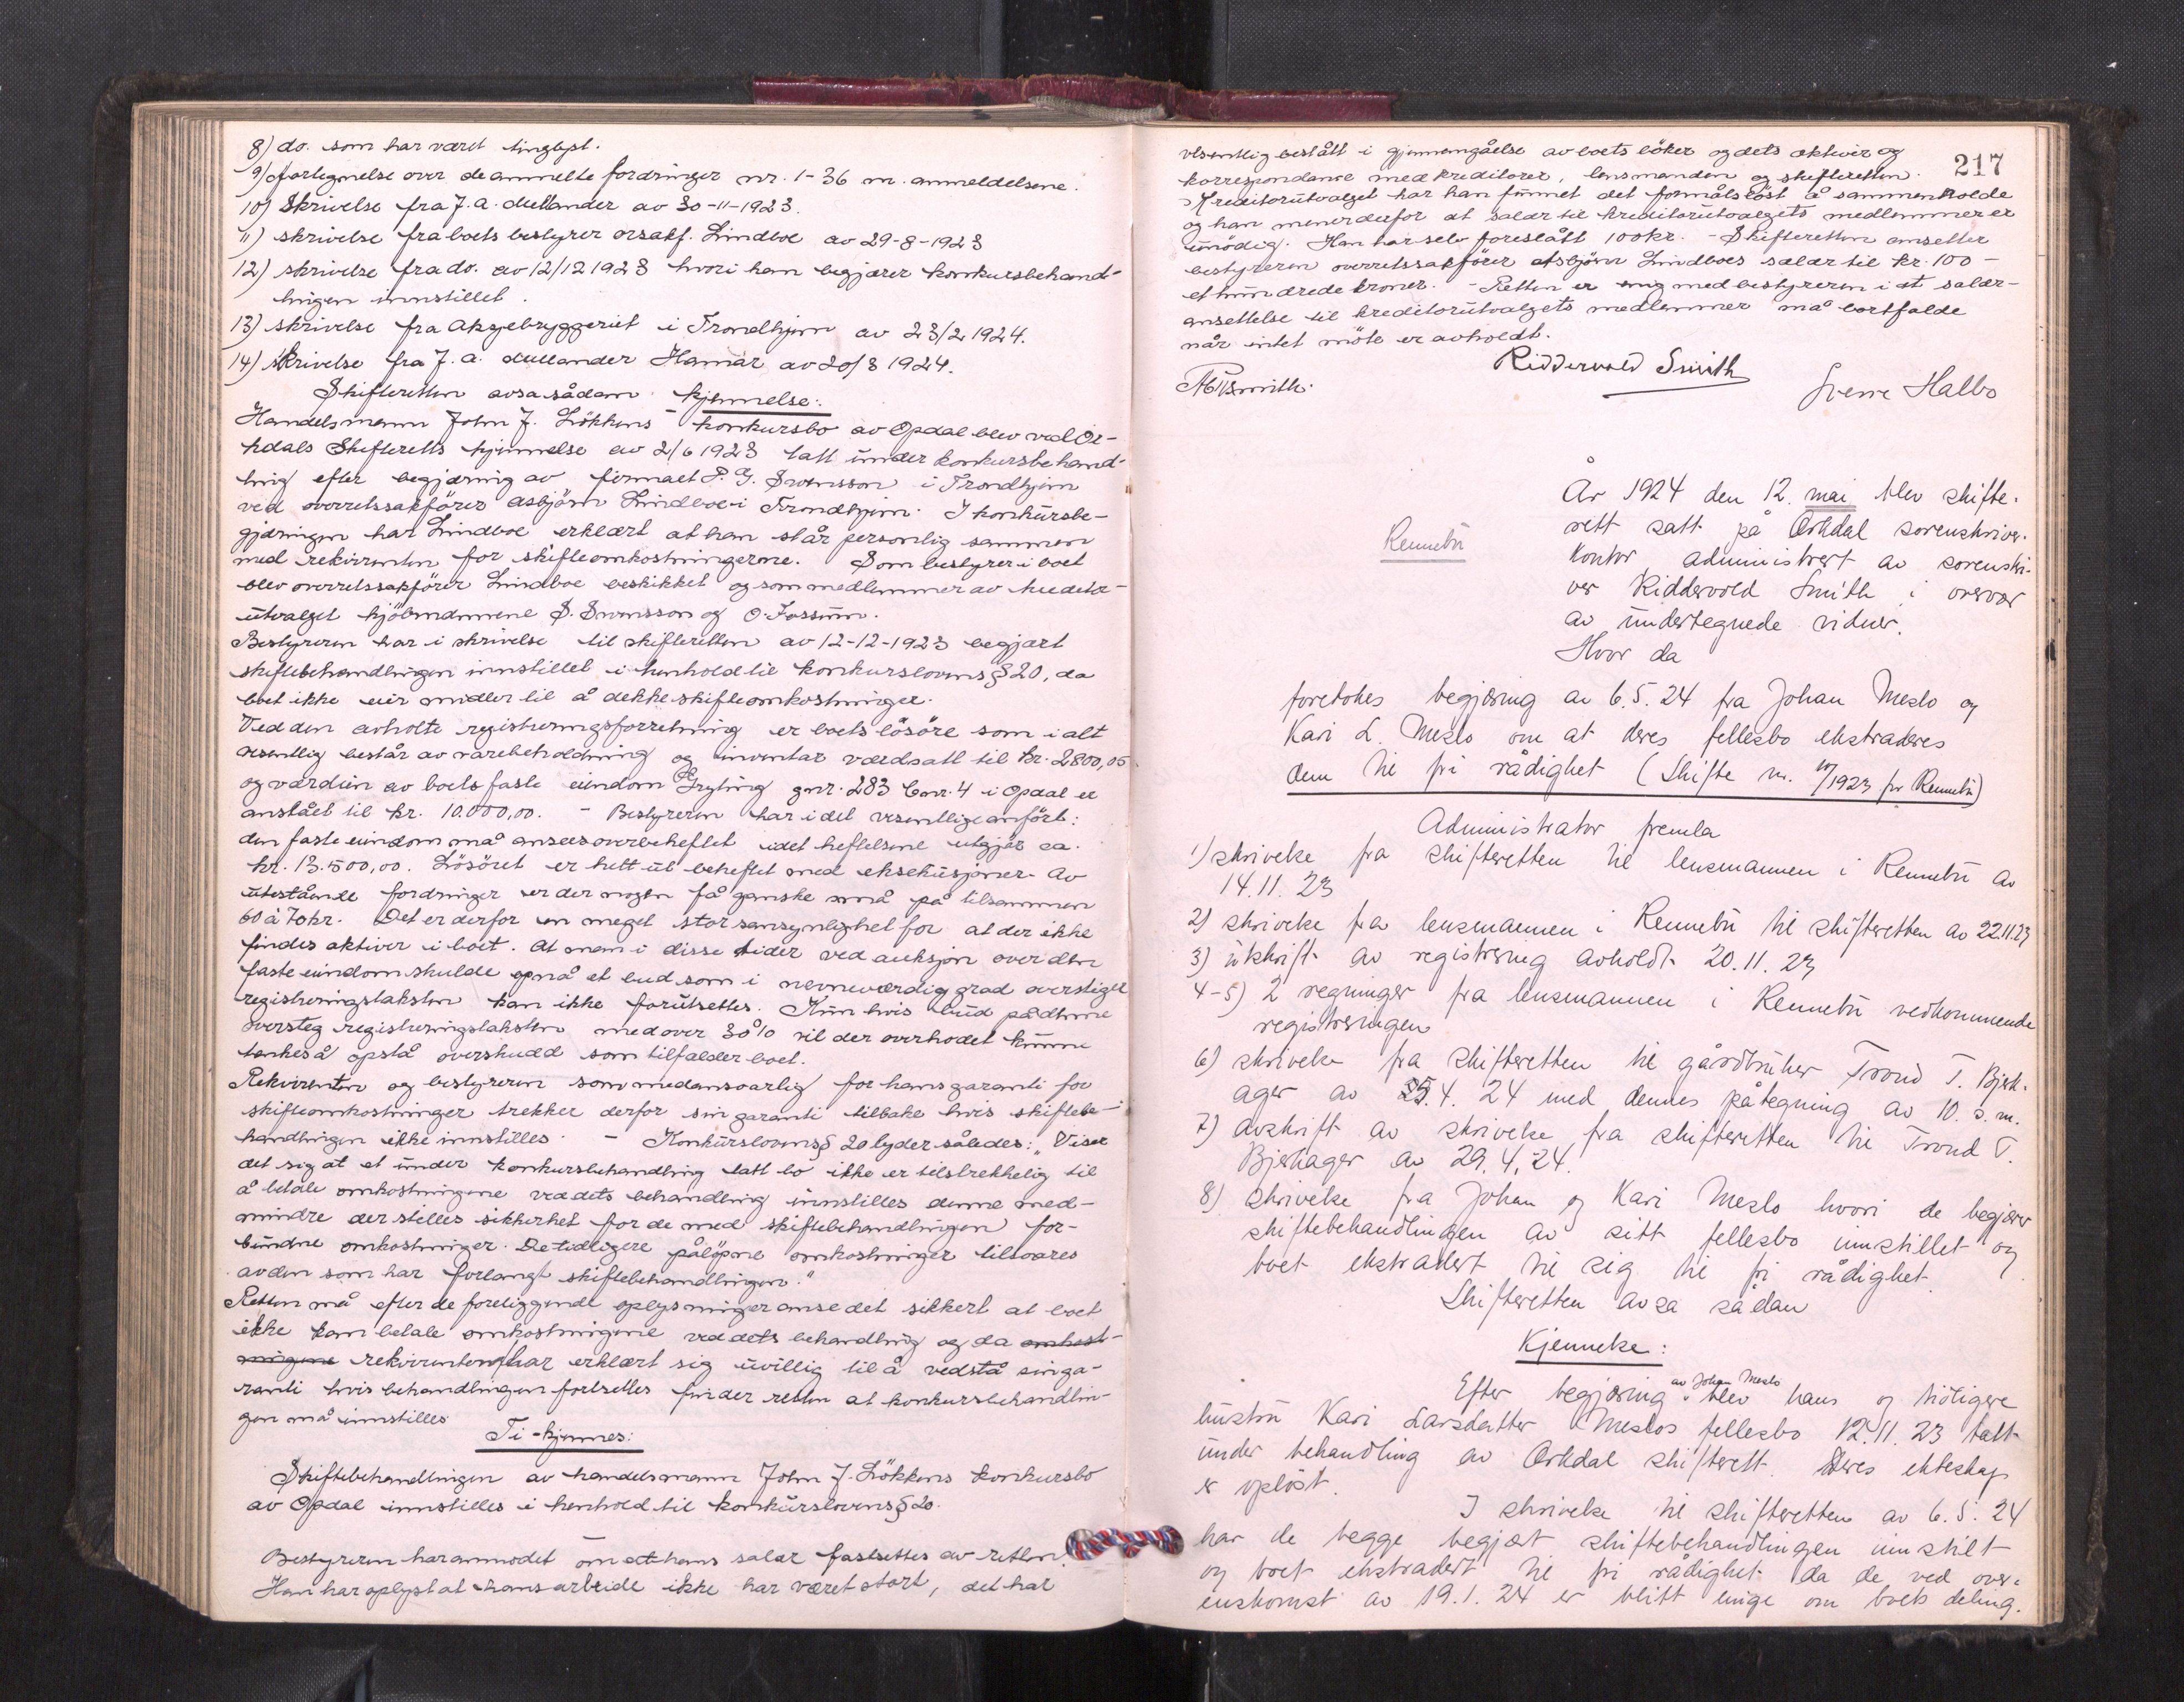 8) do. som har været tinglyst.
9) fortegnelse over de anmelte fordringer nr. 1-36 m. anmeldelsene.
10) Skrivelse fra J. A. Mellander av 30-11-1923.
11) skrivelse fra boets bestyrer orsakf. Lindboe av 29-8-1923
12) skrivelse fra do. av 12/12 1923 hvori han begjærer konkursbehand-
lingen innstillet.
13) skrivelse fra Akjebryggeriet i Trondhjem av 23/2 1924.
14) skrivelse fra J. A. Mellander Hamar av 20/3 1924.
Skifteretten avsa sådan kjennelse:
Handelsmann John J. Lökkens konkursbo av Opdal blev ved Or-
kdals Skifteretts kjennelse av 2/6 1923 tatt under konkursbehand-
ling efter begjæring av firmaet P. G. Svensson i Trondhjem
ved overretssakfører Asbjörn Lindboe i Trondhjem. I konkursbe-
gjæringen har Lindboe erklært at han står personlig sammen
med rekvirenten for skifteomkostningerne. Som bestyrer i boet
blev overretssakfører Lindboe beskikket og som medlemmer av kreditor-
utvalget kjöbmdmnene S. Svensson og O. Fossum.
Bestyreren har i skrivelse til skifteretten av 12-12-1923 begjært
skiftebehandlingen innstillet i henhold til konkurslovens § 20, da
boet ikke eier midler til å dekke skifteomkostninger.
Ved den avholte registreringsforretning er boets lösöre som i alt
vesentlig består av varebeholdning og inventar værdsatt til Kr. 2800,05
og værdien av boets faste eiendom Gryting gnr. 283 bnr. 4 i Opdal er
anslått til kr. 10.000,00. - Bestyreren har i det vesentlige anfört:
den faste eiendom må ansees overbeheftet idet heftelsene utgjör ca.
kr. 13.500,00. Lösöret er helt ut beheftet med eksekusjoner. Av
utestående fordringer er der nogen få ganske små på tilsammen
60 à 70 kr. Det er derfor en meget stor sansynlighet for at der ikke
findes aktiver i boet. At man i disse tider ved auksjon over den
faste eiendom skulde opnå et bud som i nevneværdig grad overstiger
registreringstaksten kan ikke forutsettes. Kun hvis bud på denne
oversteg registreringstaksten med over 30% vil der overhodet kunne
tenkes å opstå overskudd som tilfalder boet.
Rekvirenten og bestyreren som medansvarlig for hans garanti for
skifteomkostninger trekker derfor sin garanti tilbake hvis skiftebe-
handlingen ikke innstilles. - Konkurslovens § 20 lyder således: "Viser
det sig at et under konkursbehandling tatt bo ikke er tilstrekkelig til
å betale omkostningene ved dets behandling innstilles denne med-
mindre der stilles sikkerhet for de med skiftebehandlingen for-
bundne omkostninger. De tidligere påløpne omkostninger tilsvares
av den som har forlangt skiftebehandlingen."
Retten må efter de foreliggende oplysninger anse det sikkert at boet
ikke kan betale omkostningene ved dets behandling og da omkost-
ningene rekvirenten har erklært sig uvillig til å vedstå sin ga-
ranti hvis behandlingen fortsettes finder retten at konkursbehandlin-
gen må innstilles
Ti kjennes:
Skiftebehandlingen av handelsmann John J. Lökkens konkursbo
av Opdal innstilles i henhold til konkurslovens § 20.
Bestyreren har anmodet om at hans salær fastsettes av retten.
Han har oplyst at hans arbeide ikke har været stort, det har
217
vesentlig bestått i gjennemgåelse av boets böker og dets aktiver og
korrespondanse med kreditorer, lensmanden og skifteretten.
Kreditorutvalget har han funnet det formålslöst å sammenkalde
og han mener derfor at salær til kreditorutvalgets medlemmer er
unödig. Han har selv foreslått 100 kr. - Skifteretten ansetter
bestyreren overretssakförer Asbjörn Lindboes salær til kr. 100 -
et hundrede kroner. - Retten er enig med bestyreren i at salær-
ansettelse til kreditorutvalgets medlemmer må bortfalde
når intet möte er avholdt.
Riddervold Smith
Sverre Halbo
Rennebu
År 1924 den 12. mai blev skifte-
rett satt på Orkdal sorenskriver-
kontor, administrert av sorenskri-
ver Riddervold Smith i overvær
av undertegnede vidner.
Hvor da
foretokes begjæring av 6.5.24 fra Johan Meslo og
Kari L. Meslo om at deres fellesbo ekstraderes
dem til fri rådighet (Skifte nr. /1923 for Rennebu)
Administrator fremla
1) skrivelse fra skifteretten til lensmannen i Rennebu av
14.11.23
2) skrivelse fra lensmannen i Rennebu til skifteretten av 22.11.23
3) utskrift av registrering avholdt 20.11.23
4-5) 2 regninger fra lensmannen i Rennebu vedkommende
registreringen
6) skrivelse fra skifteretten til gårdbruker Trond T. Bjerk-
ager av 25.4.24 med dennes påtegning av 10. s. m.
7) avskrift av skrivelse fra skifteretten til Trond T.
Bjerkager av 29.4.24.
8) skrivelse fra Johan og Kari Meslo hvori de begjærer
skiftebehandlingen av sitt fellesbo innstillet og
boet ekstradert til sig til fri rådighet.
Skifteretten avsa sådan
Kjennelse:
Efter begjæring av Johan Meslo blev hans og tidligere
hustru Kari Larsdatter Meslos fellesbo 12.11.23 tatt
under behandling av Orkdal skifterett. Deres ekteskap
er oplöst.
I skrivelse til skifteretten av 6.5.24
har de begge begjært skiftebehandlingen innstilt
og boet ekstradert til fri rådighet da de ved over-
enskomst av 19.1.24 er blitt enige om boets deling.